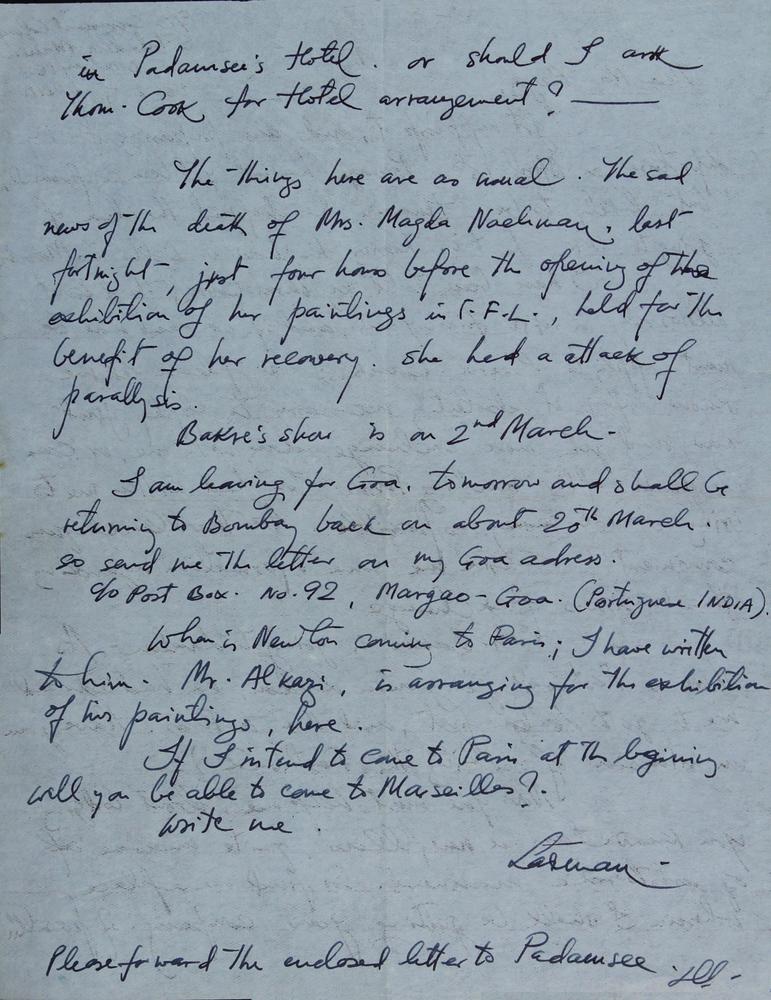 in Padamsee's Hotel. or should I ask
Thom. Cook for Hotel arrangement? —
The things here are as usual. The sad
news of the death of Mrs. Magda Nachman, last
fortnight, just four hours before the opening of the
exhibition of her paintings in I.F.L., held for the
benefit of her recovery. she had a attack of
parallysis.
Bakre's show is on 2nd March-
I am leaving for Goa, tomorrow and shall be
returning to Bombay back on about 20th March.
so send me the letter on my Goa adress.
c/o Post Box. No. 92, Margao-Goa. (Portuguese INDIA).
When is Newton coming to Paris; I have written
to him. Mr. Alkazi, is arranging for the exhibition
of his paintings, here.
If I intend to come to Paris at the bgining
will you be able to come to Marseilles?.
write me.
Laxman-
Please forward the enclosed letter to Padamsee.